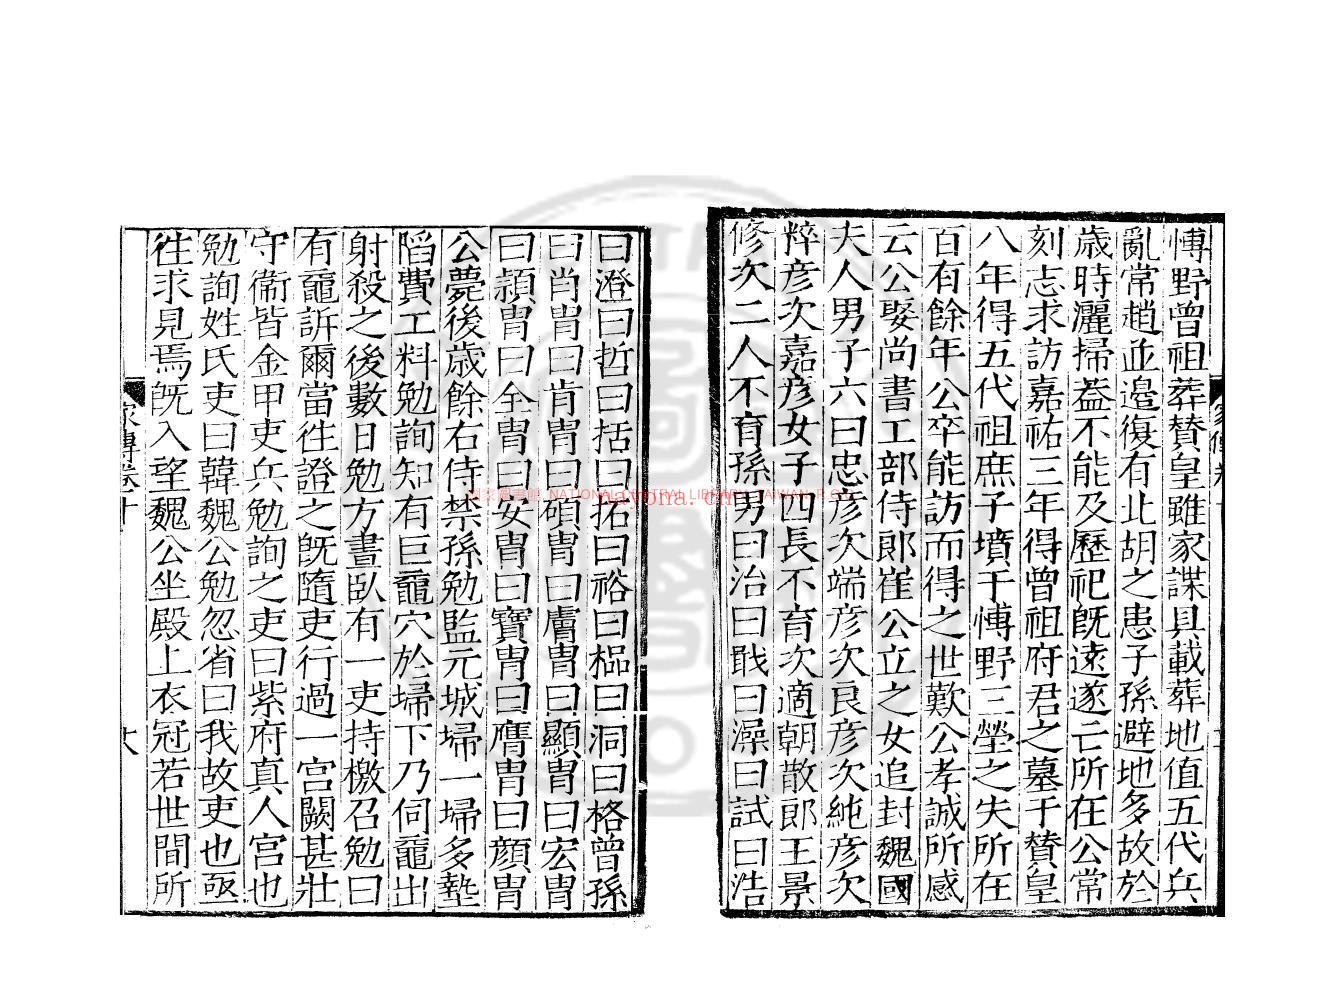 愽野曾祖葬賛皇雖家諜具載葬地值五代兵
亂常趙並邉復有北胡之患子孫避地多故於
歲時灑掃葢不能及歷祀旣逺遂亡所在公常
刻志求訪嘉祐三年得曾祖府君之墓于賛皇
八年得五代祖庶子墳于愽野三塋之失所在
百有餘年公卒能訪而得之世歎公孝誠所感
云公娶尚書工部侍郎崔公立之女追封魏國
夫人男子六曰忠彦次端彦次良彦次純彦次
粹彦次嘉彦女子四長不育次適朝散郎王景
修次二人不育孫男曰治曰戩曰澡曰試曰浩
家傳卷十
曰澄曰哲曰括曰拓曰裕曰樞曰洞曰格曾孫
曰肖胄曰肯胄曰碩胄曰膚胄曰顯胄曰宏胄
曰頴胄曰全胄曰安胄曰寶胄曰膺胄曰顔胄
公薨後歲餘右侍禁孫勉監元城埽一埽多墊
陷費工料勉詢知有巨黿穴於埽下乃伺黿出
射殺之後數日勉方晝臥有一吏持檄召勉曰
有黿訴爾當徃證之旣隨吏行過一宫闕甚壯
守衞皆金甲吏兵勉詢之吏曰紫府真人宫也
勉詢姓氏吏曰韓魏公勉忽省曰我故吏也亟
徃求見焉旣入望魏公坐殿上衣冠若世間所
家傳卷十
NATIONAL CENTRAL LIBRARY, TAIWAN, R.O.C